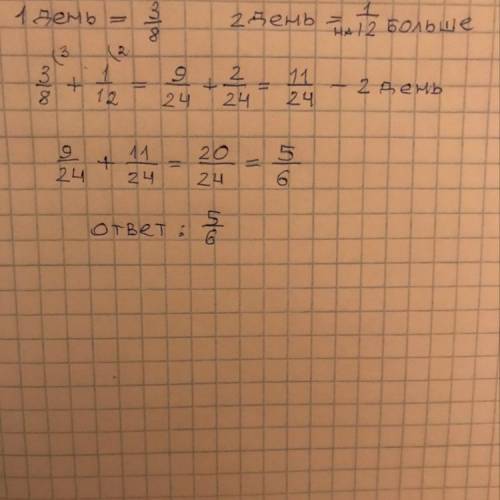 1 день = 3/8 2 день = на 1/12 больше
3/8 (3 + 1/12 (2 = 9/24 + 2/24 = 11/24 - 2 день
9/24 + 11/24 = 20/24 = 5/6
ответ: 5/6